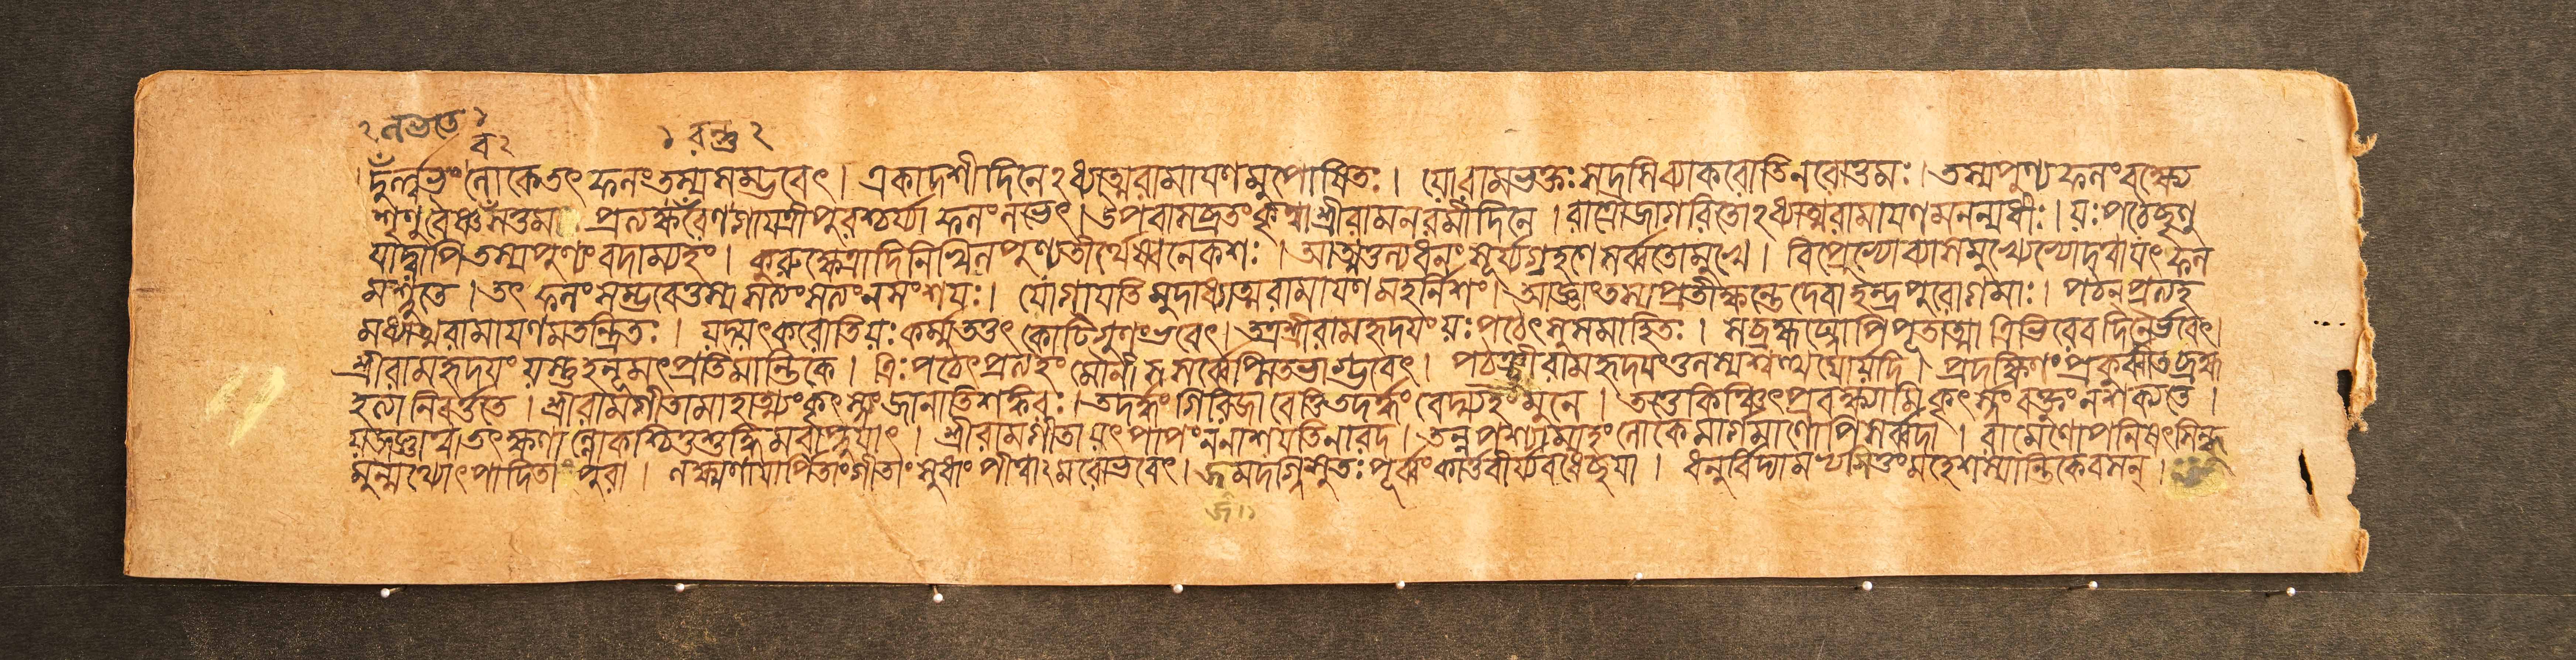 २ লভ্যতে १
ব२
१ বন্তু २
দুর্ল্লভং লোকেতৎ ফলংতস্যসম্ভবেৎ। একাদশীদিনেঽধ্যাত্মরামাযণমুপোষিতঃ। যোরামভক্তঃসদসিব্যাকরোতিনরোত্তমঃ। তস্যপুণ্যফলংবক্ষ্যে
শৃণুবৈষ্ণসত্তম। প্রত্যক্ষরংণগাযত্রীপুরশ্চর্য্যাফলংলভেৎ। উপবাসব্রতংকৃত্বাশ্রীরামনবমীদিনে। রাত্রৌজাগরিতোঽধ্যাত্মরামাযণমনন্যধীঃ। যঃপঠেচ্ছৃণু
যাদ্বাপিতস্যপুণ্যংবদাম্যহং। কুরুক্ষেত্রাদিনিখিলপুণ্যতীর্থেষ্বনেকশঃ। আত্মতুল্যধনংসূর্য্যগ্রহণেসর্ব্বতোমুখে। বিপ্রেভ্যোব্যাসমুখ্যেভ্যোদত্বাযৎফল
মশ্নুতে। তৎ ফলংসম্ভবেত্তস্য সত্যংসত্যংনসংশযঃ। যোগাযতিমুদাধ্যাত্মরামাযণমহর্নিশং। আজ্ঞাংতস্যপ্রতীক্ষন্তেদেবাইন্দ্রপুরোগমাঃ। পঠনপ্রত্যহ
মধ্যাত্মরামাযণমতন্দ্রিতঃ। যদ্যৎকরোতিযঃকর্ম্মতত্তৎ কোটিগুণংভবেৎ। তত্রশ্রীরামহৃদযংযঃপঠেৎসুসমাহিতঃ। সব্রহ্মঘ্নোপিপূতাত্মা ত্রিভিরেবদিনৈর্ভবেৎ।
শ্রীরামহৃদযং যস্তুহনূমৎপ্রতিমান্তিকে। ত্রিঃপঠেৎপ্রত্যহংমৌনীসসর্ব্বেপ্সিতভাগ্ভবেৎ। পঠঞ্ছ্রীরামহৃদযংতুলস্যশ্বত্থযোর্যদি। প্রদক্ষিণংপ্রকুর্ব্বীতব্রহ্ম
হত্যানিবর্ত্ততে। শ্রীরামগীতামাহাত্ম্যংকৃৎস্নংজানাতিশঙ্করঃ। তদর্দ্ধংগিরিজাবেত্তিতদর্দ্ধংবেদ্ম্যহংমুনে। তত্তেকিঞ্চিৎপ্রবক্ষ্যামিকৃৎস্নংবক্তুংনশক্যতে।
যজ্জ্ঞাত্বাতৎক্ষণাল্লোকশ্চিত্তশুদ্ধিমবাপ্নুযাৎ। শ্রীরামগীতাযৎপাপংননাশযতিনারদ। তন্নপশ্যাম্যহংলোকেমার্গমাণোপিসর্ব্বদা। রামেণোপনিষৎসিন্ধু
মুন্মথ্যোৎপাদিতাং পুরা। লক্ষ্মণাযার্পিতাংগীতাংসুধাংপীত্বাঽমরোভবেৎ। জমদগ্নিসুতঃপূর্ব্বংকার্ত্তবীর্য্যবধেচ্ছযা। ধনুর্বিদ্যামভ্যসিতুংমহেশস্যান্তিকেবসন্।